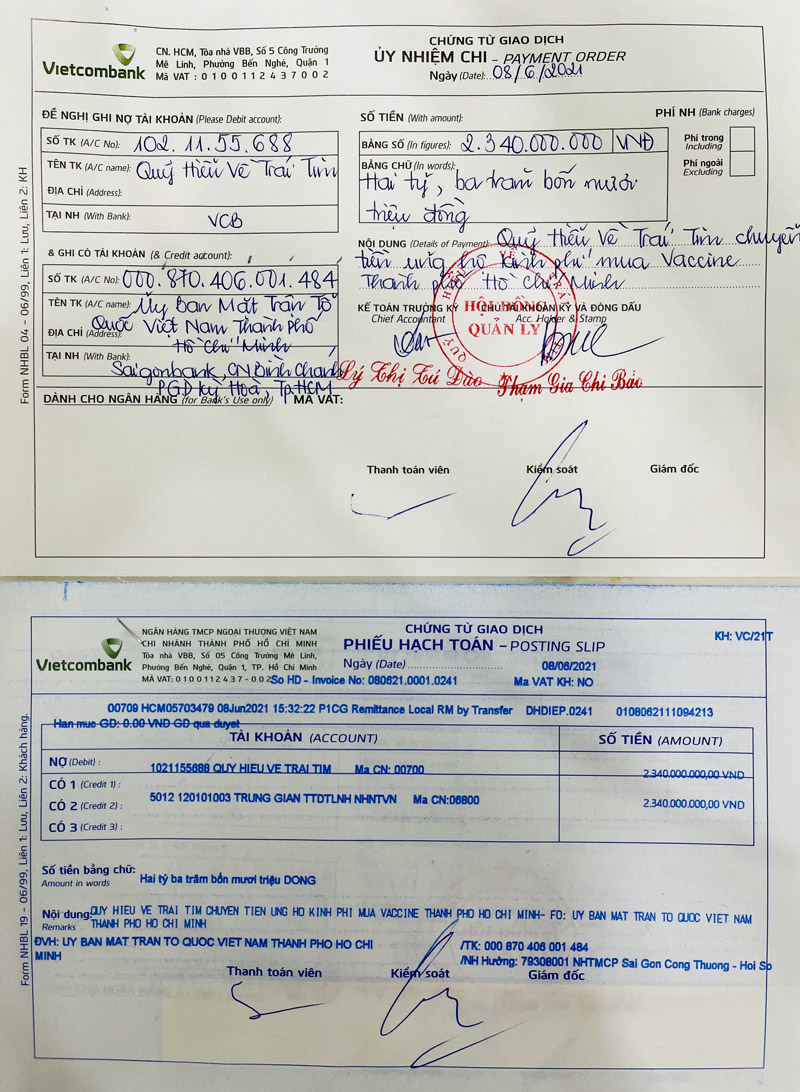 Vietcombank
CN. HCM, Tòa nhà VBB, Số 5 Công Trường
Mê Linh, Phường Bến Nghé, Quận 1
Mã VAT : 0 1 0 0 1 1 2 4 3 7 0 0 2
CHỨNG TỪ GIAO DỊCH
ỦY NHIỆM CHI – PAYMENT ORDER
Ngày (Date): 08/6/2021
ĐỀ NGHỊ GHI NỢ TÀI KHOẢN (Please Debit account):
SỐ TK (A/C No): 102.11.55.688
TÊN TK (A/C name): Quỹ Hiểu Về Trái Tim
ĐỊA CHỈ (Address):
TẠI NH (With Bank): VCB
SỐ TIỀN (With amount):
PHÍ NH (Bank charges)
BẰNG SỐ (In figures): 2.340.000.000 VNĐ
Phí trong
Including
BẰNG CHỮ (In words):
Hai tỷ, ba trăm bốn mươi
triệu đồng
Phí ngoài
Excluding
NỘI DUNG (Details of Payment): Quỹ Hiểu Về Trái Tim chuyển
tiền ủng hộ kinh phí mua Vaccine
Thành phố Hồ Chí Minh
& GHI CÓ TÀI KHOẢN (& Credit account):
SỐ TK (A/C No): 000.870.406.001.484
TÊN TK (A/C name): Ủy Ban Mặt Trận Tổ
ĐỊA CHỈ (Address): Quốc Việt Nam Thành Phố
Hồ Chí Minh
TẠI NH (With Bank):
Saigonbank, CN Bình Chánh
PGD Kỳ Hoà, Tp.HCM
KẾ TOÁN TRƯỞNG KÝ
Chief Accountant
CHỦ TÀI KHOẢN KÝ VÀ ĐÓNG DẤU
Acc. Holder & Stamp
HỘI ĐỒNG
QUẢN LÝ
Lý Thị Tú Đào
Phạm Gia Chi Bảo
DÀNH CHO NGÂN HÀNG (for Bank's Use only) MÃ VAT:
Thanh toán viên
Kiểm soát
Giám đốc
Form NHBL 04 - 06/99, Liên 1: Lưu, Liên 2: KH
Vietcombank
NGÂN HÀNG TMCP NGOẠI THƯƠNG VIỆT NAM
CHI NHÁNH THÀNH PHỐ HỒ CHÍ MINH
Tòa nhà VBB, Số 05 Công Trường Mê Linh,
Phường Bến Nghé, Quận 1, TP. Hồ Chí Minh
MÃ VAT: 0 1 0 0 1 1 2 4 3 7 - 0 0 2
CHỨNG TỪ GIAO DỊCH
PHIẾU HẠCH TOÁN – POSTING SLIP
KH: VC/21T
Ngày (Date) 08/06/2021
So HD - Invoice No: 080621.0001.0241
Ma VAT KH: NO
00709 HCM05703479 08Jun2021 15:32:22 P1CG Remittance Local RM by Transfer DHDIEP.0241 0108062111094213
Han muc GD: 0.00 VND GD qua duyet
TÀI KHOẢN (ACCOUNT)
SỐ TIỀN (AMOUNT)
NỢ (Debit) : 1021155688 QUY HIEU VE TRAI TIM Ma CN: 00700 2.340.000.000,00 VND
CÓ 1 (Credit 1) :
5012 120101003 TRUNG GIAN TTDTLNH NHNTVN Ma CN:06800 2.340.000.000,00 VND
CÓ 2 (Credit 2) :
CÓ 3 (Credit 3) :
Số tiền bằng chữ:
Amount in words
Hai tỷ ba trăm bốn mươi triệu DONG
Nội dung: QUY HIEU VE TRAI TIM CHUYEN TIEN UNG HO KINH PHI MUA VACCINE THANH PHO HO CHI MINH- FO: UY BAN MAT TRAN TO QUOC VIET NAM
Remarks THANH PHO HO CHI MINH
ĐVH: UY BAN MAT TRAN TO QUOC VIET NAM THANH PHO HO CHI
MINH
/TK: 000 870 406 001 484
/NH Hưởng: 79308001 NHTMCP Sai Gon Cong Thuong - Hoi So
Thanh toán viên
Kiểm soát
Giám đốc
Form NHBL 19 - 06/99, Liên 1: Lưu, Liên 2: Khách hàng.